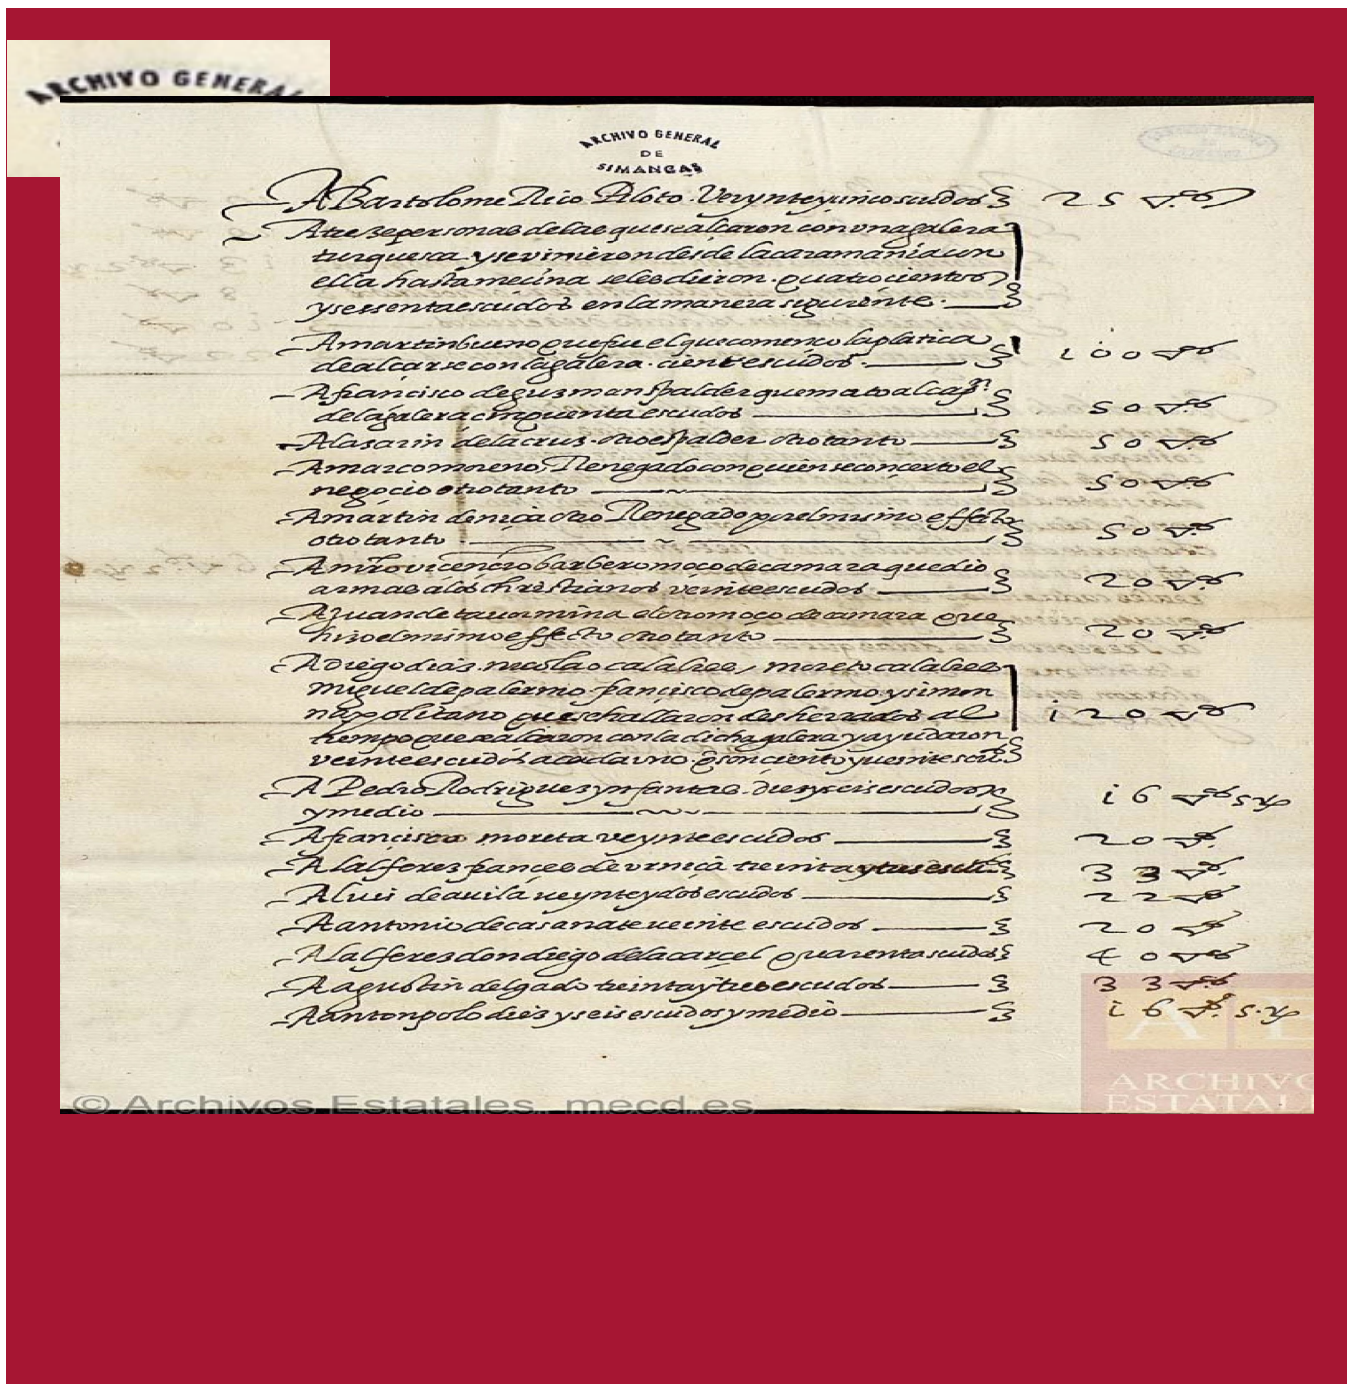 ARCHIVO GENERAL
ARCHIVO GENERAL
DE
SIMANCAS
A Bartolome Rico Piloto. Veynte y cinco escudos 25
A treze personas de las que se alçaron con vna galera
turquesca y se vinieron desde la caramania con
ella hasta meçina se les dieron. quatrocientos
y sesenta escudos en la manera siguiente.
A martin bueno que fue el que començo la platica
de alçarse con la galera. cient escudos. 100
A francisco de guzman espalder que mato al capan
de la galera cinquenta escudos 50
A lasarin de la cruz. otro espalder otro tanto 50
A marco moreno, Renegado con quien se conçerto el
negocio otro tanto 50
A martin de niça otro Renegado por el mismo effecto
otro tanto 50
A mro vicencio barbero moço de camara que dio
armas a los christianos veinte escudos 20
A Juan de tauormina otro moço de camara que
hizo el mismo effecto otro tanto 20
A diego dias. nicolao calabres, moreto calabres
miguel de palermo. francisco de palermo y simon
napolitano que se hallaron desherrados al 120
tiempo que se alçaron con la dicha galera y ayudaron
veinte escudos a cada vno. que son ciento y veinte escus
A Pedro Rodriguez ynfantas. diez y seis escudos 16 5 rs
y medio
A francisco moreta veynte escudos 20
Al alferez françes de vrniça treinta y tres escus 33
A luis de auila veynte y dos escudos 22
A antonio de casanate veinte escudos 20
Al alferez don diego de la carcel quarenta escudos 40
A agustin delgado treinta y tres escudos 33
A anton polo diez y seis escudos y medio 16 5. rs
ARCHIVO
ESTATAL
© Archivos Estatales, mecd.es